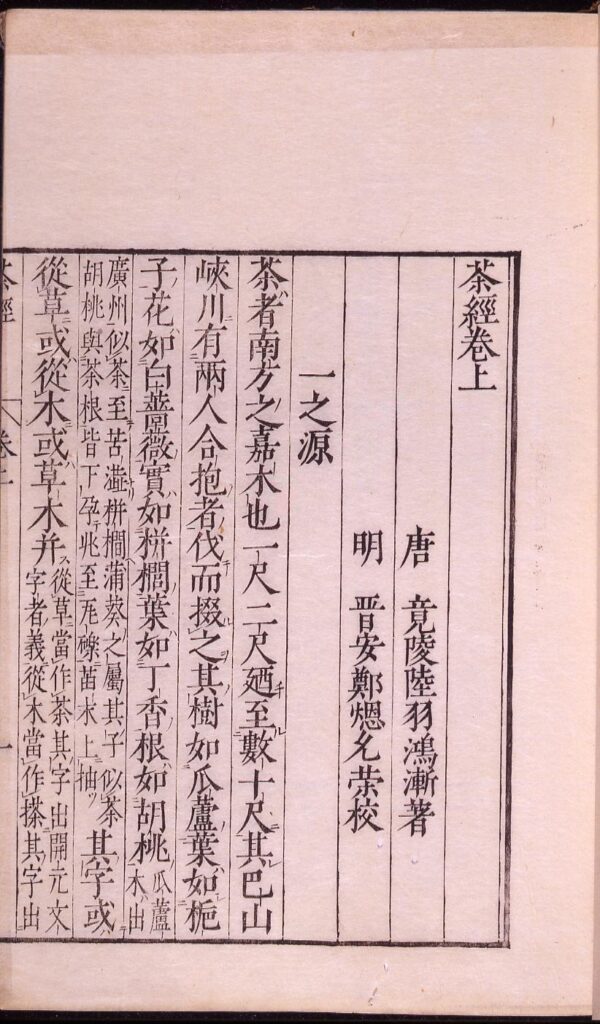 茶經卷上
唐　竟陵陸羽鴻漸著
明　晋安鄭熜允荣校
一之源
茶者南方之嘉木也一尺二尺廼至數十尺其巴山
峽川有兩人合抱者伐而掇之其樹如瓜蘆葉如梔
子花如白薔薇實如栟櫚葉如丁香根如胡桃瓜蘆木出
廣州似茶至苦澁栟櫚蒲葵之屬其子似茶
胡桃與茶根皆下孕兆至瓦礫苗木上抽
其字或
從草或從木或草木并
從草當作茶其字出開元文
字者義從木當作搽其字出
茶經　卷上　一